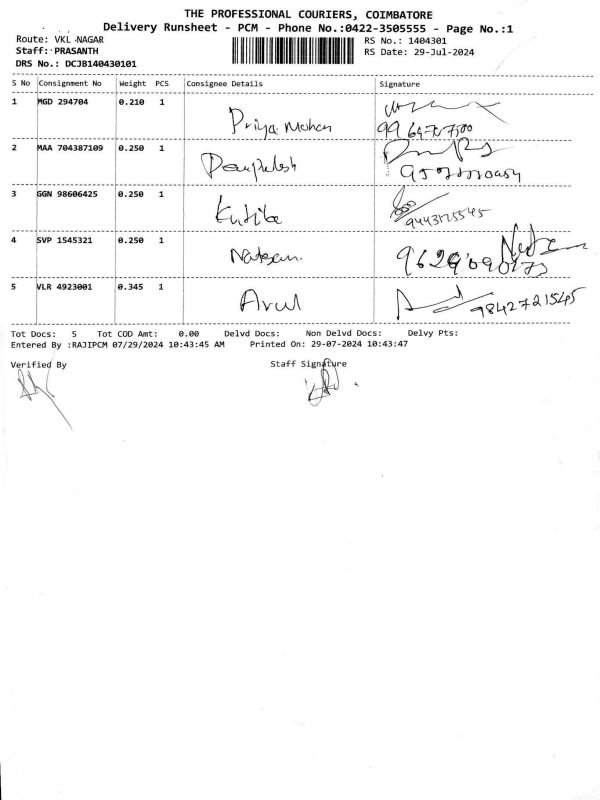 THE PROFESSIONAL COURIERS, COIMBATORE
Delivery Runsheet - PCM - Phone No.:0422-3505555 - Page No.:1
Route: VKL NAGAR RS No.: 1404301
Staff: PRASANTH RS Date: 29-Jul-2024
DRS No.: DCJB140430101
S No Consignment No Weight PCS Consignee Details Signature
1 MGD 294704 0.210 1
Priya Mohan
2 MAA 704387109 0.250 1
3 GGN 98606425 0.250 1
9443125545
4 SVP 1545321 0.250 1
Natesan
5 VLR 4923001 0.345 1
Arul 9842721545
Tot Docs: 5 Tot COD Amt: 0.00 Delvd Docs: Non Delvd Docs: Delvy Pts:
Entered By :RAJIPCM 07/29/2024 10:43:45 AM Printed On: 29-07-2024 10:43:47
Verified By Staff Signature